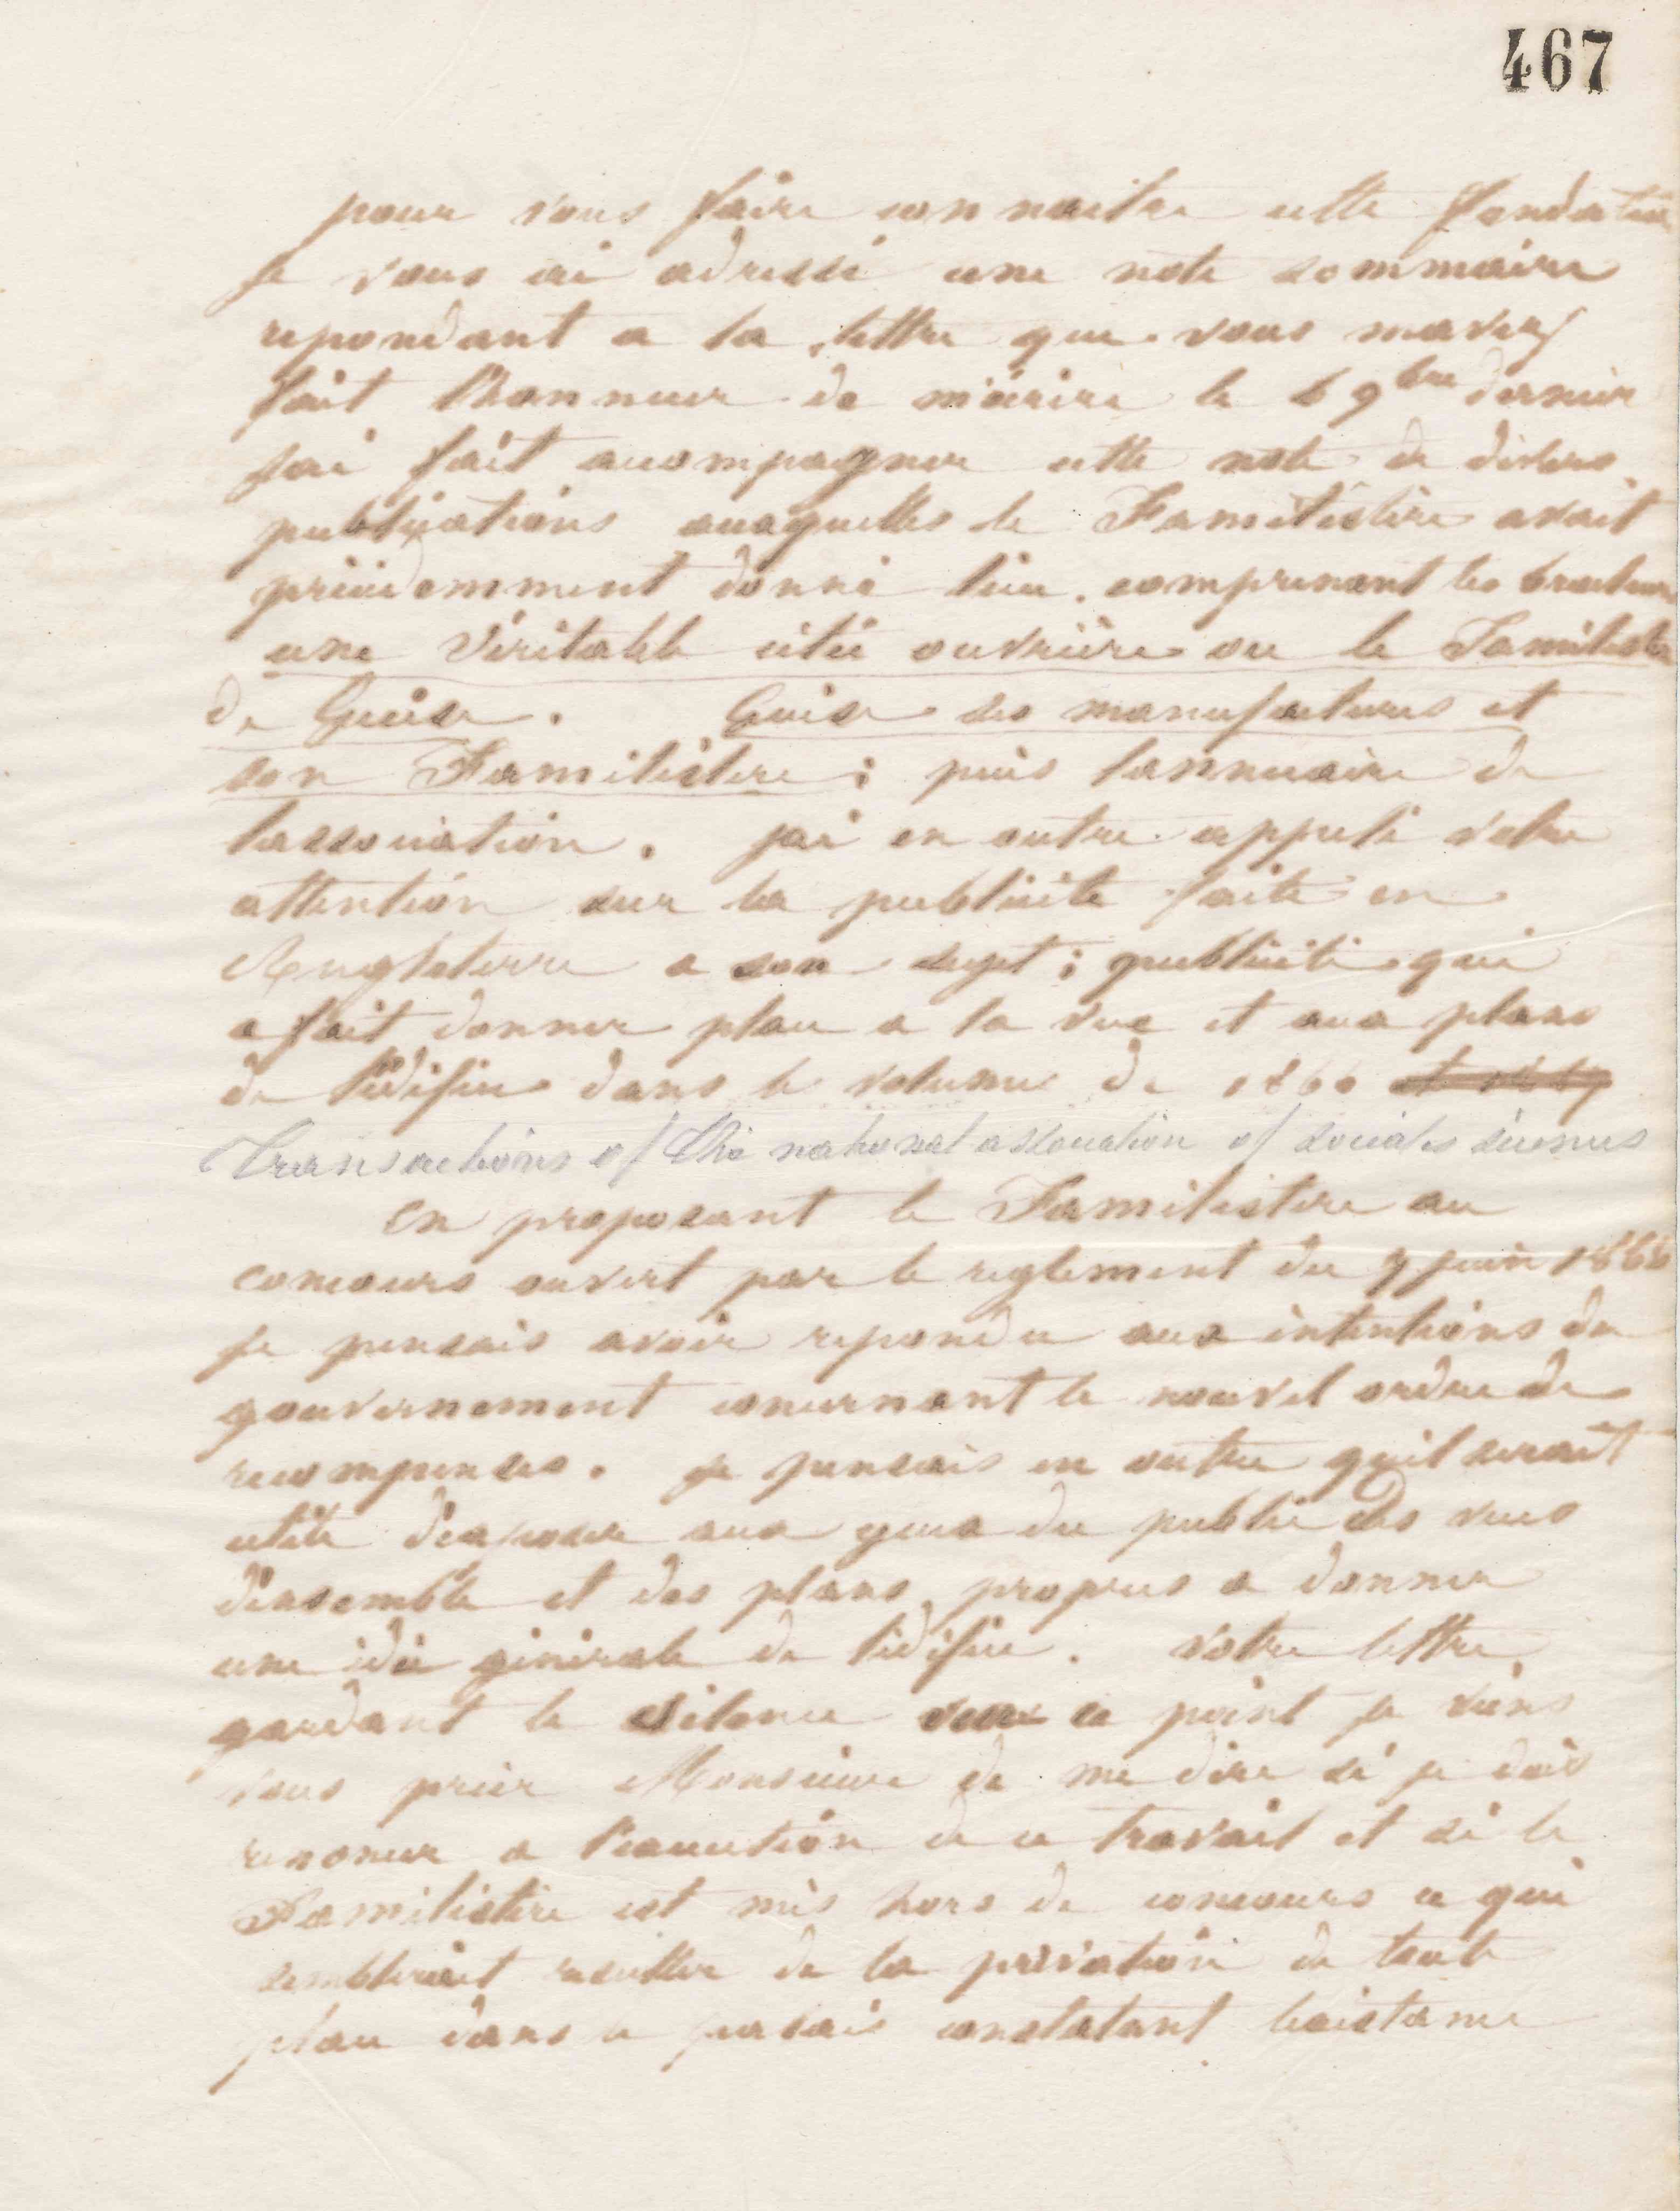 467
pour vous faire connaitre cette fondation
je vous ai adressé une note sommaire
repondant a la lettre que vous mavez
fait l'honneur de m'écrire le 6 9bre dernier
jai fait accompagner cette note de divers
publications auxquelles le Familistère avait
précédemment donné lieu. comprenant les brochures
une véritable cité ouvrière ou le Familistère
de Guise. Guise ses manufactures et
son Familistère; puis lannuaire de
lassociation. jai en outre appelé votre
attention sur la publicité faite en
Angleterre a son sujet; publicité qui
a fait donner place a la vue et aux plans
de l'édifice dans le volume de 1860
Transactions of thé national association of sociales siences
En proposant le Familistere au
concours ouvert par le reglement du 7 juin 1866
je pensais avoir repondu aux intentions du
gouvernement concernant le nouvel ordre de
recompenses. je pensais en outre quil serait
utile d'exposer aux yeux du public des vues
d'ensemble et des plans propres a donner
une idée générale de l'édifice. Votre lettre
gardant le silence sur ce point je viens
vous prier Monsieur de me dire si je dois
renoncer a l'execution de ce travail et si le
Familistère est mis hors de concours ce qui
semblerait resulter de la privation de toute
place dans le palais constatant lexistance